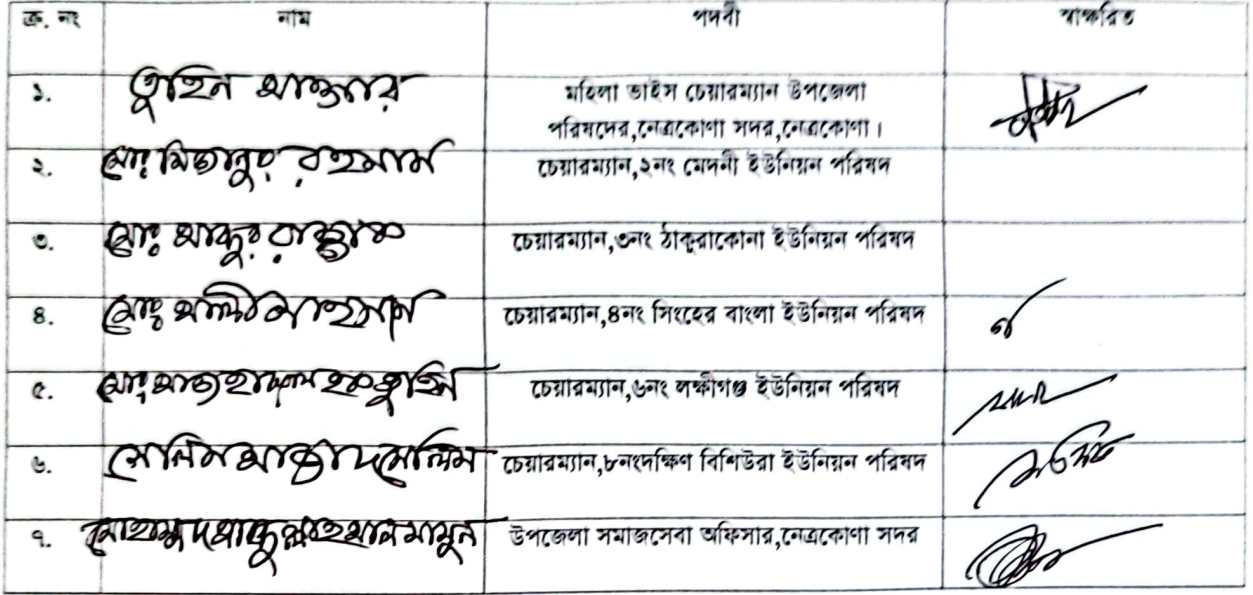 ক্র. নং নাম পদবী স্বাক্ষরিত
১. তুহিন আক্তার মহিলা ভাইস চেয়ারম্যান উপজেলা
পরিষদের,নেত্রকোণা সদর,নেত্রকোণা।
২. মোঃ মিজানুর রহমান চেয়ারম্যান,২নং মেদনী ইউনিয়ন পরিষদ
৩. মোঃ আব্দুর রাজ্জাক চেয়ারম্যান,৩নং ঠাকুরাকোনা ইউনিয়ন পরিষদ
৪. মোঃ আলী আহসান চেয়ারম্যান,৪নং সিংহের বাংলা ইউনিয়ন পরিষদ
৫. মোঃ হক তুহিন চেয়ারম্যান,৬নং লক্ষীগঞ্জ ইউনিয়ন পরিষদ
৬. সেলিম আজাদ সেলিম চেয়ারম্যান,৮নংদক্ষিণ বিশিউরা ইউনিয়ন পরিষদ
৭. মোহাম্মদ আব্দুল্লাহ আল মামুন উপজেলা সমাজসেবা অফিসার,নেত্রকোণা সদর